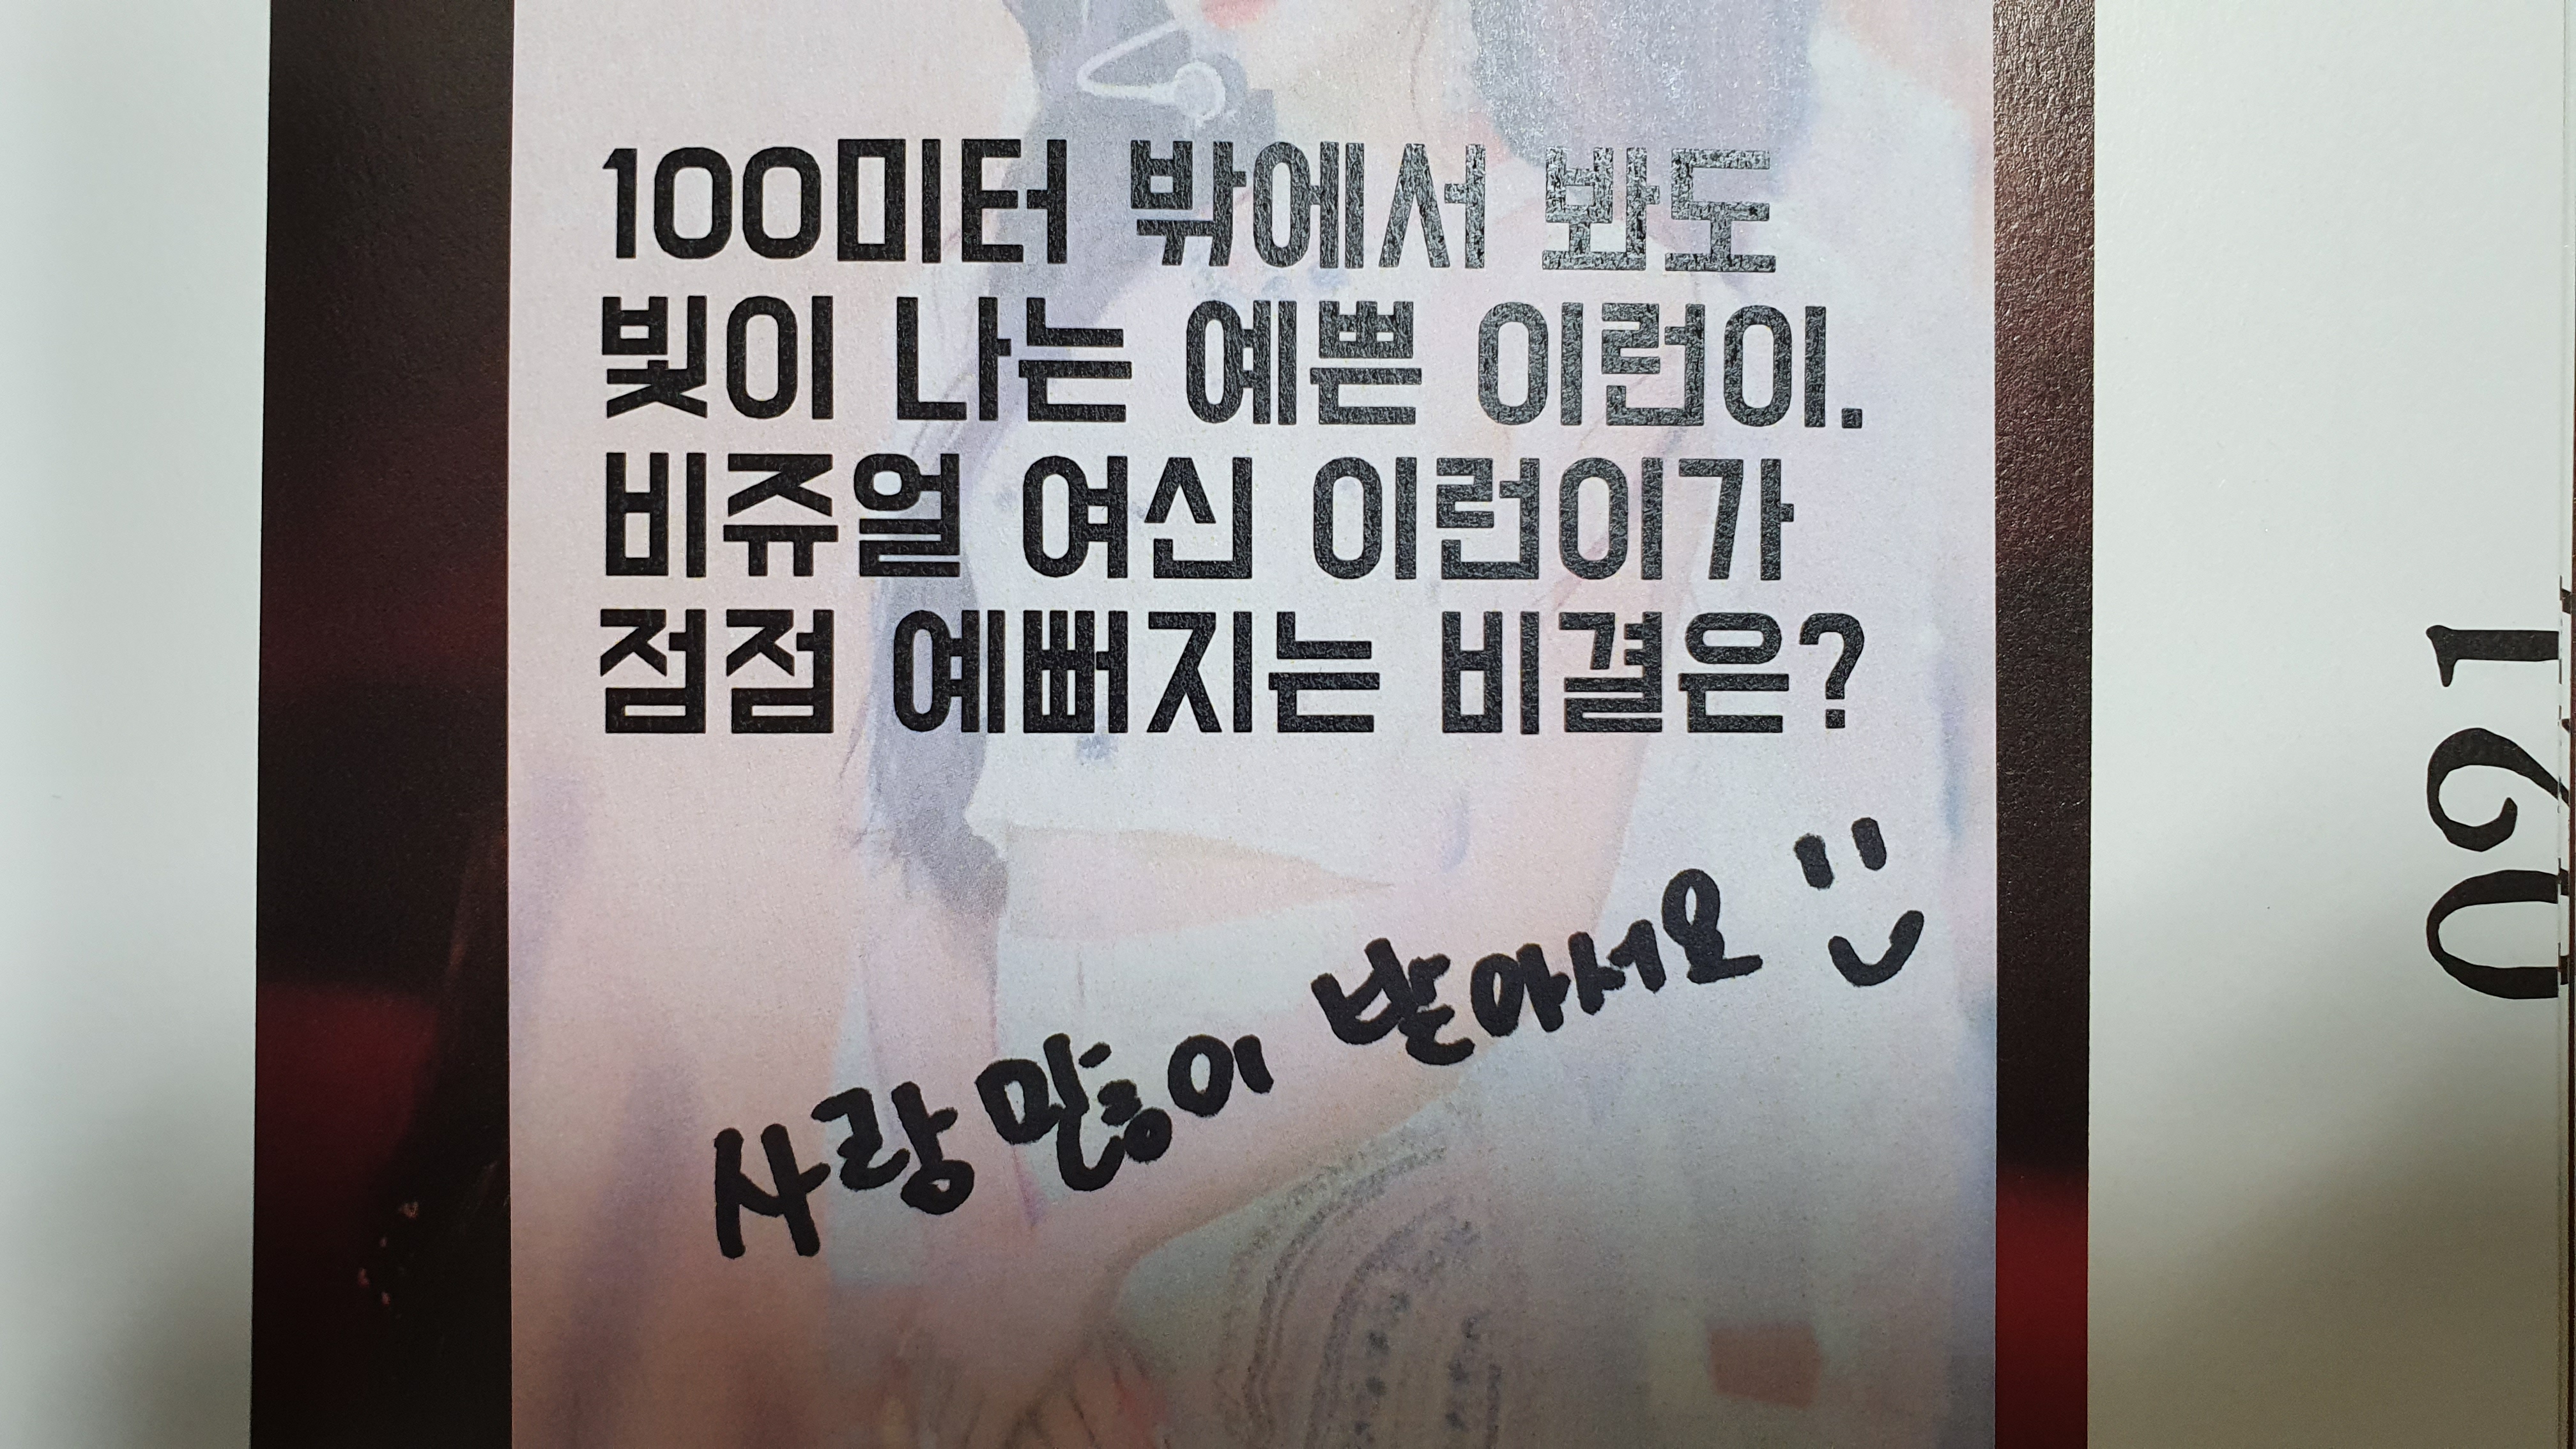 100미터 밖에서 봐도
빛이 나는 예쁜 이런이.
비쥬얼 여신 이런이가
점점 예뻐지는 비결은?
사랑 많이 받아서요
021